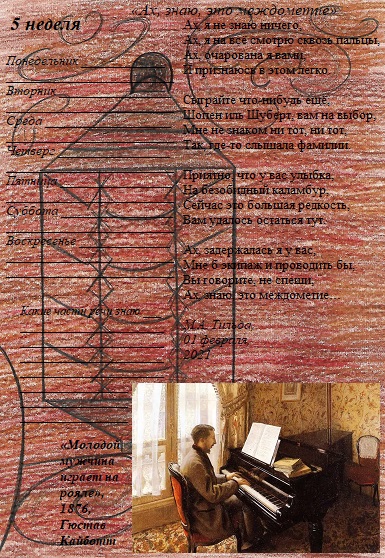 «Ах, знаю, это междометие»
5 неделя
Понедельник
Вторник
Среда
Четверг
Пятница
Суббота
Воскресенье
Какие части речи знаю
Ах, я не знаю ничего,
Ах, я на всё смотрю сквозь пальцы,
Ах, очарована я вами,
И признаюсь в этом легко.
Сыграйте что-нибудь ещё,
Шопен иль Шуберт, вам на выбор,
Мне не знаком ни тот, ни тот,
Так, где-то слышала фамилии.
Приятно, что у вас улыбка,
На безобидный каламбур,
Сейчас это большая редкость,
Вам удалось остаться тут.
Ах, задержалась я у вас,
Мне б экипаж и проводить бы,
Вы говорите, не спеши,
Ах, знаю, это междометие…
М.А.
01 февраля
2021
«Молодой
мужчина
играет на
рояле»,
1876,
Гюстав
Кайботт